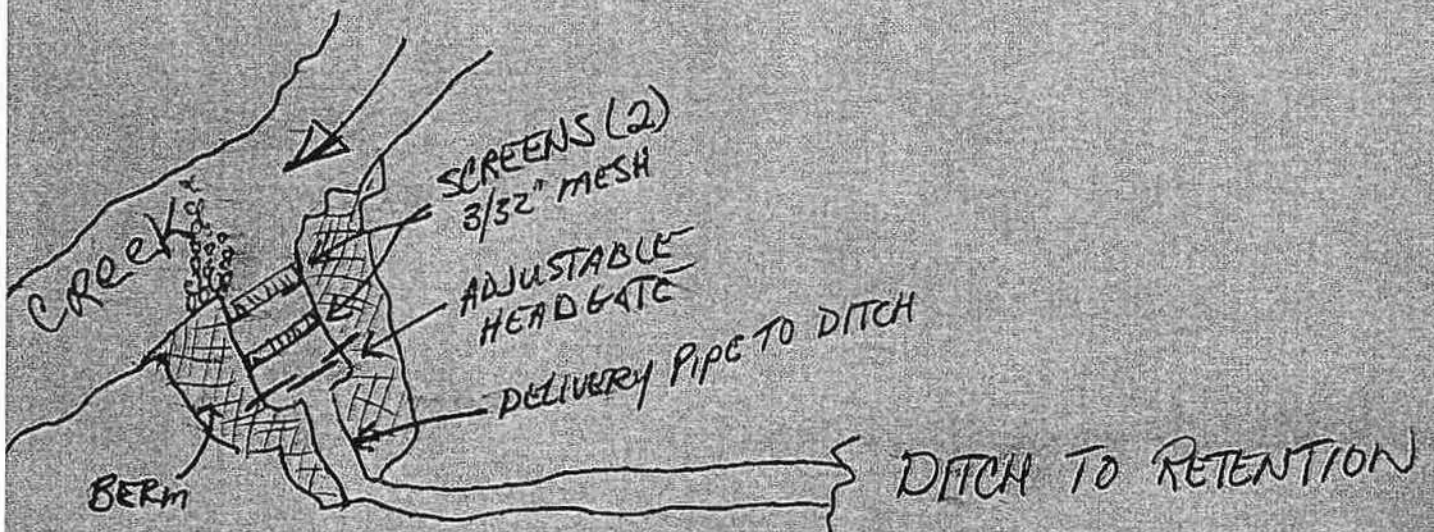 CREEK
SCREENS (2)
3/32" MESH
ADJUSTABLE
HEADGATE
DELIVERY PIPE TO DITCH
DITCH TO RETENTION
BERM